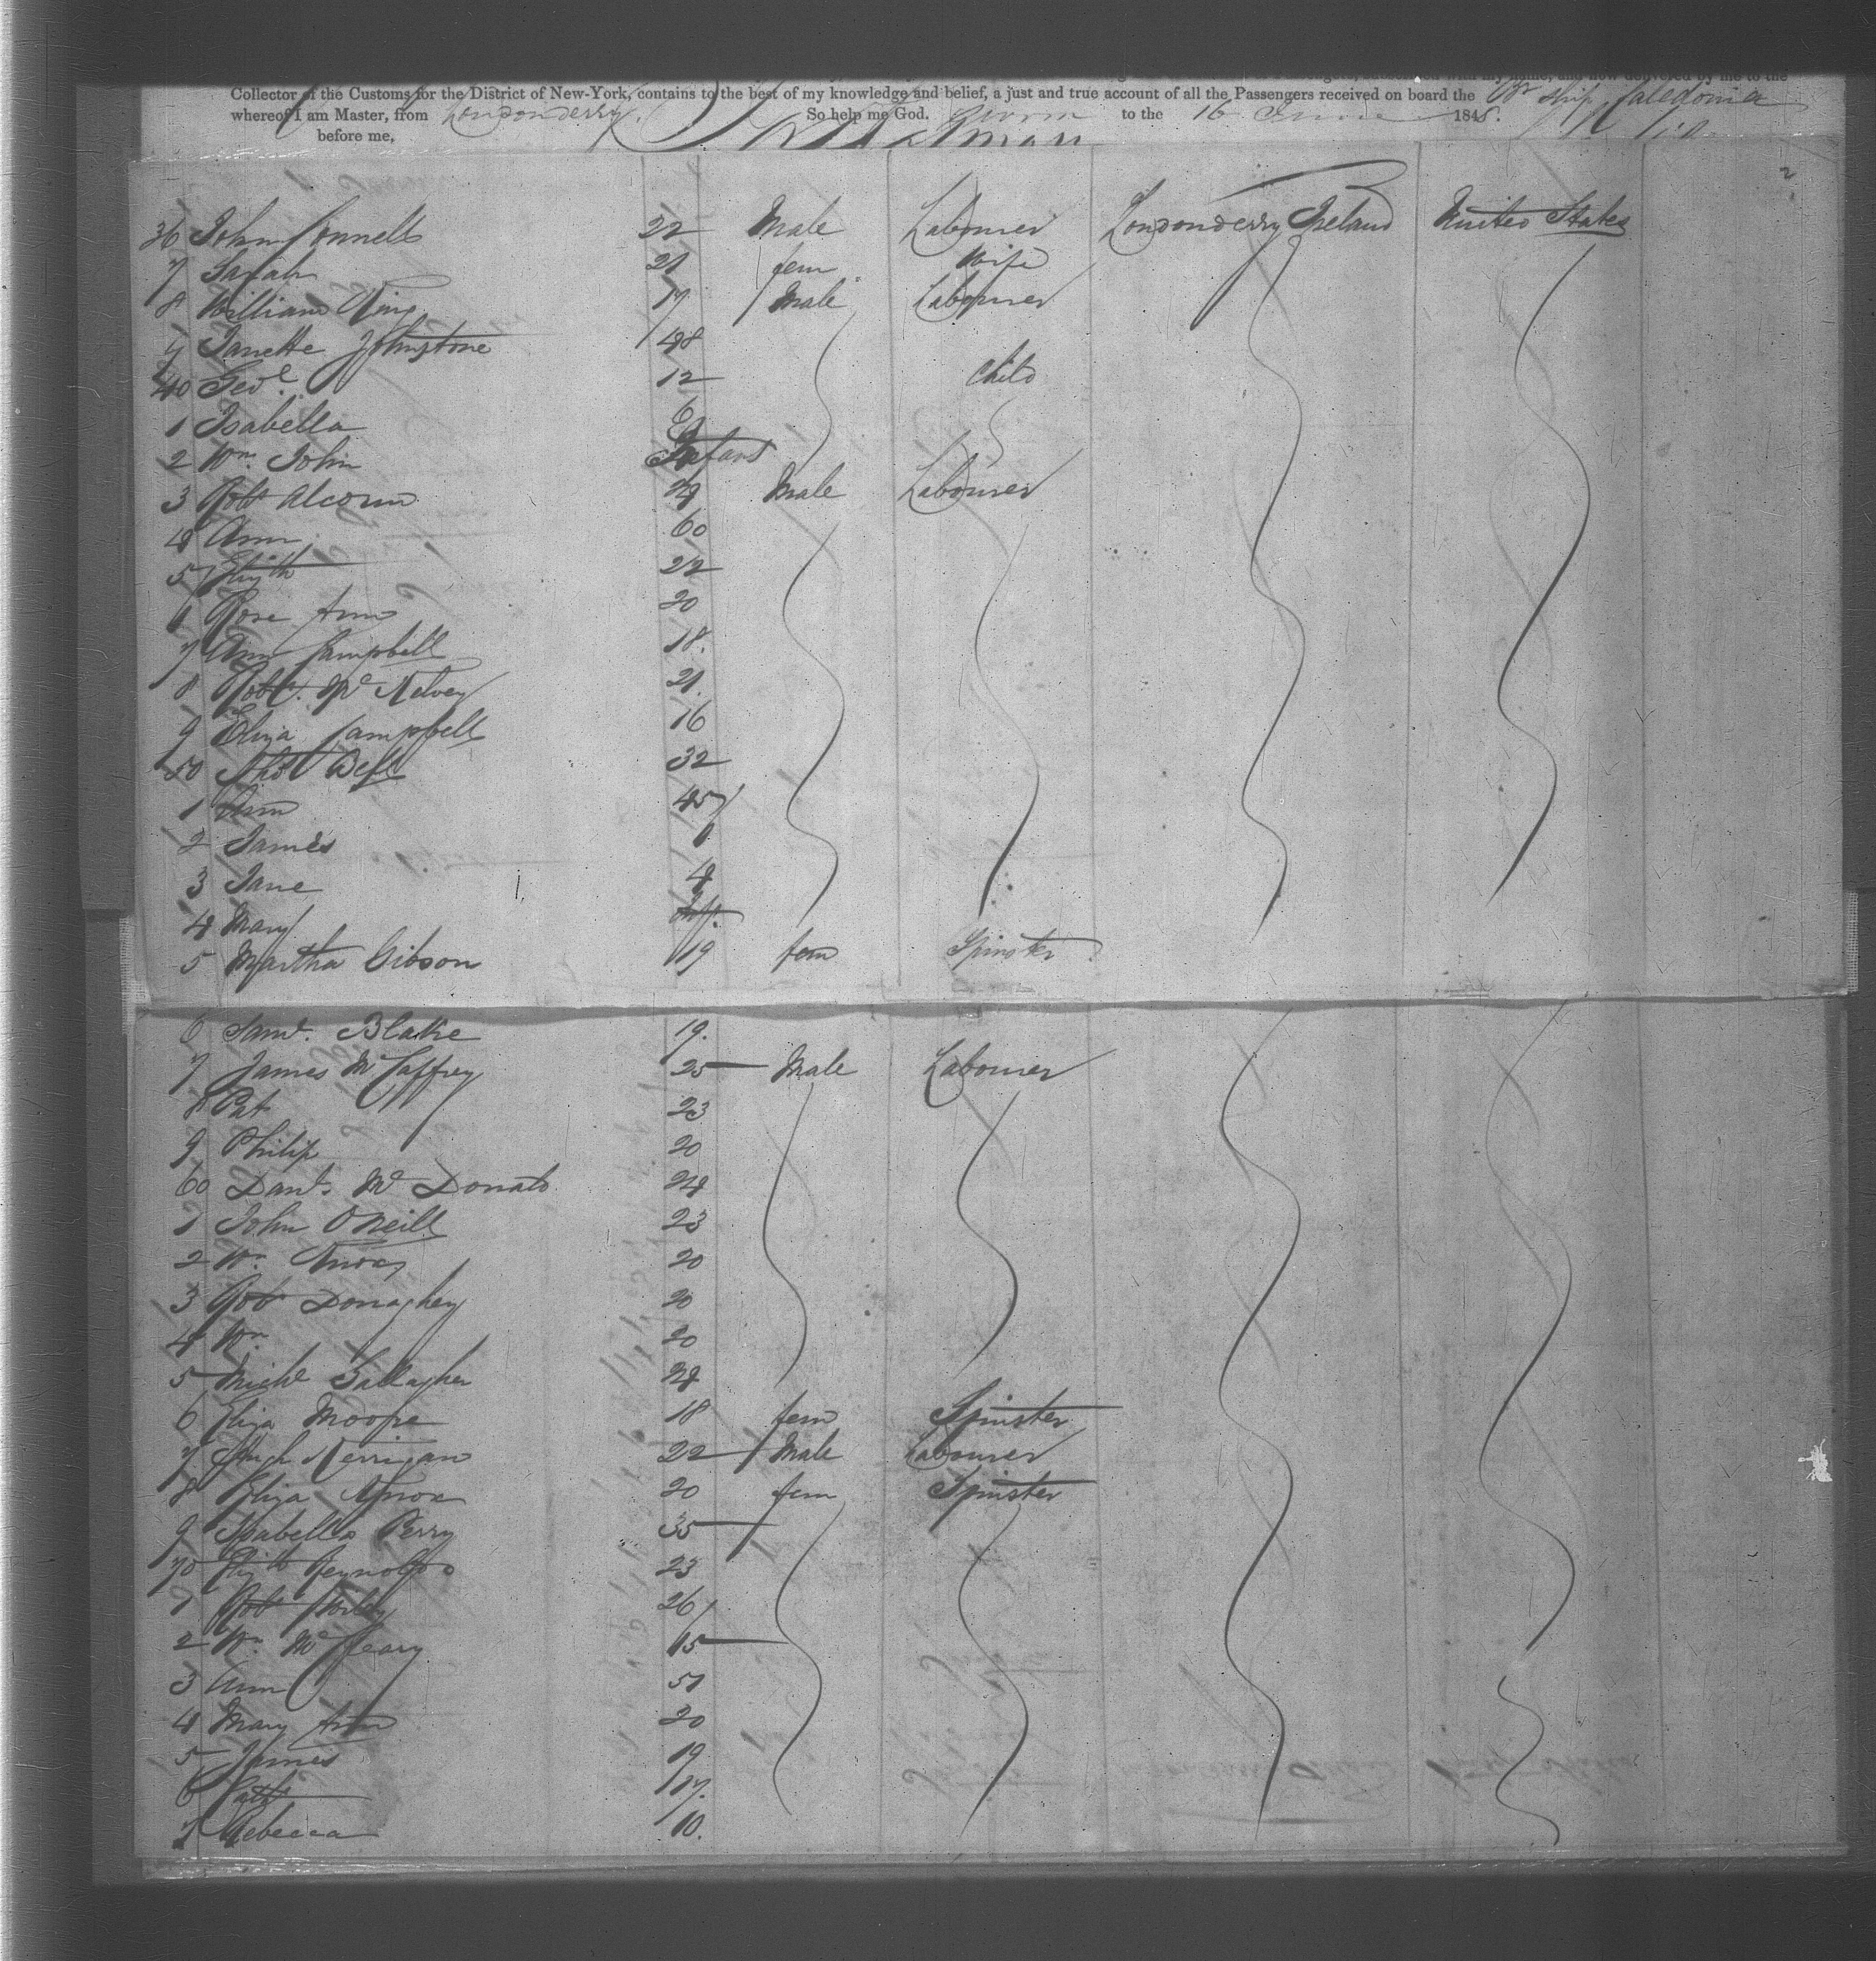 Collector of the Customs for the District of New-York, contains to the best of my knowledge and belief, a just and true account of all the Passengers received on board the Br ship Caledonia
whereof I am Master, from Londonderry. So help me God. Sworn to the 16 June 1845.
before me,
2
36 John Connell 22 Male Labourer Londonderry Ireland United States
7 Sarah 21 fem Wife
8 William King 17 Male Labourer
9 Janette Johnstone 48
40 Geo. 12 Child
1 Isabella 6
2 Wm. John Infant
3 Robt Alcorn 24 Male Labourer
4 Ann 60
5 Elizth 22
6 Rose Ann 20
7 Ann Campbell 18.
8 Robt. Mc Kelvey 21.
9 Eliza Campbell 16
50 Thos West 32
1 Ann 45
2 James
3 Jane 4
4 Mary Inf.
5 Martha Gibson 19 fem Spinster
6 Saml. Blake 19.
7 James Mc Caffrey 25 Male Labourer
8 Pat 23
9 Philip 20
60 Danl. Mc Donald 24
1 John O'Neill 23
2 Wm. Knox 20
3 Rob Donaghey 20
4 Wm 20
5 Michl Gallagher 24
6 Eliza Moore 18 fem Spinster
7 Hugh Kerrigan 22 Male Labourer
8 Eliza Knox 20 fem Spinster
9 Isabella Perry 35
70 Elizth Reynolds 23
1 Rob 26
2 Wm. Mc 15
3 Ann 51
4 Mary Ann 20
5 James 19
6 Cath 17.
7 Rebecca 10.